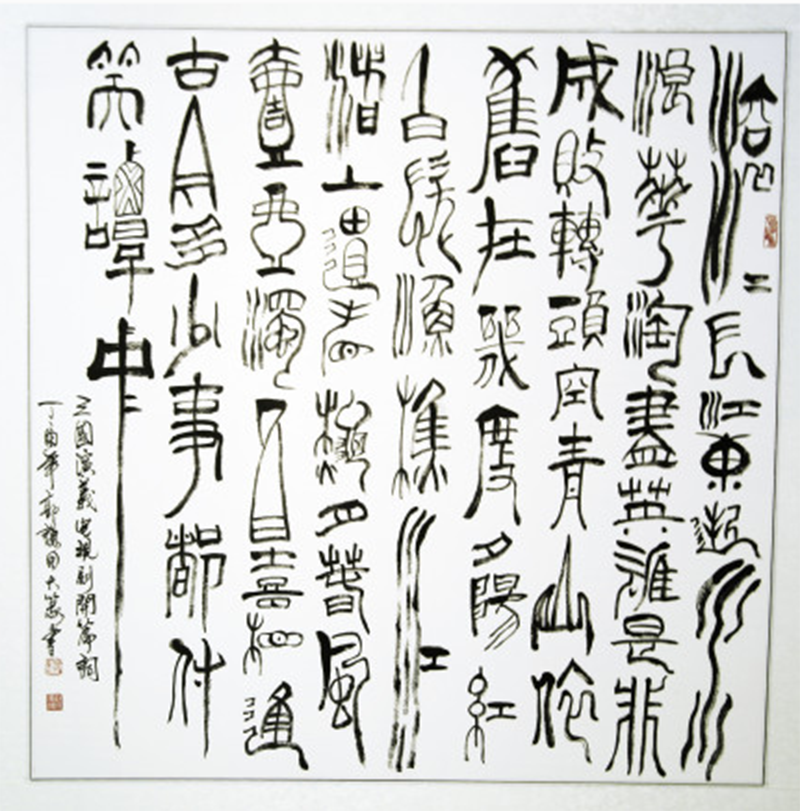 滚二長江東逝水
浪花淘盡英雄是非
成敗轉頭空青山依
舊在幾度夕陽紅
白髮漁樵江
渚上慣看秋月春風
壹壺濁酒喜相逢
古今多少事都付
笑譚中
三國演義電視劇開篇詞
丁酉年郭用大篆書